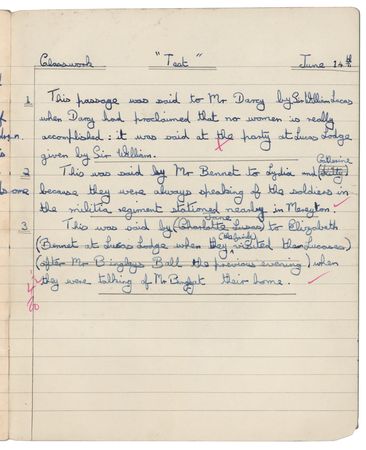 Classwork "Test" June 14th
1 This passage was said to Mr Darcy by Sir William Lucas
when Darcy had proclaimed that no women is really
accomplished: it was said at the party at Lucas Lodge
given by Sir William.
Catherine
2 This was said by Mr Bennet to Lydia and (Kitty)
because they were always speaking of the soldiers in
the militia regiment stationed nearby in Meryton.
Jane
3 This was said by (Charlotte Lucas) to Elizabeth
(Bennet at Lucas Lodge when they visited the Lucases)
(after Mr Bingleys Ball the previous evening) when
they were talking of Mr their home.